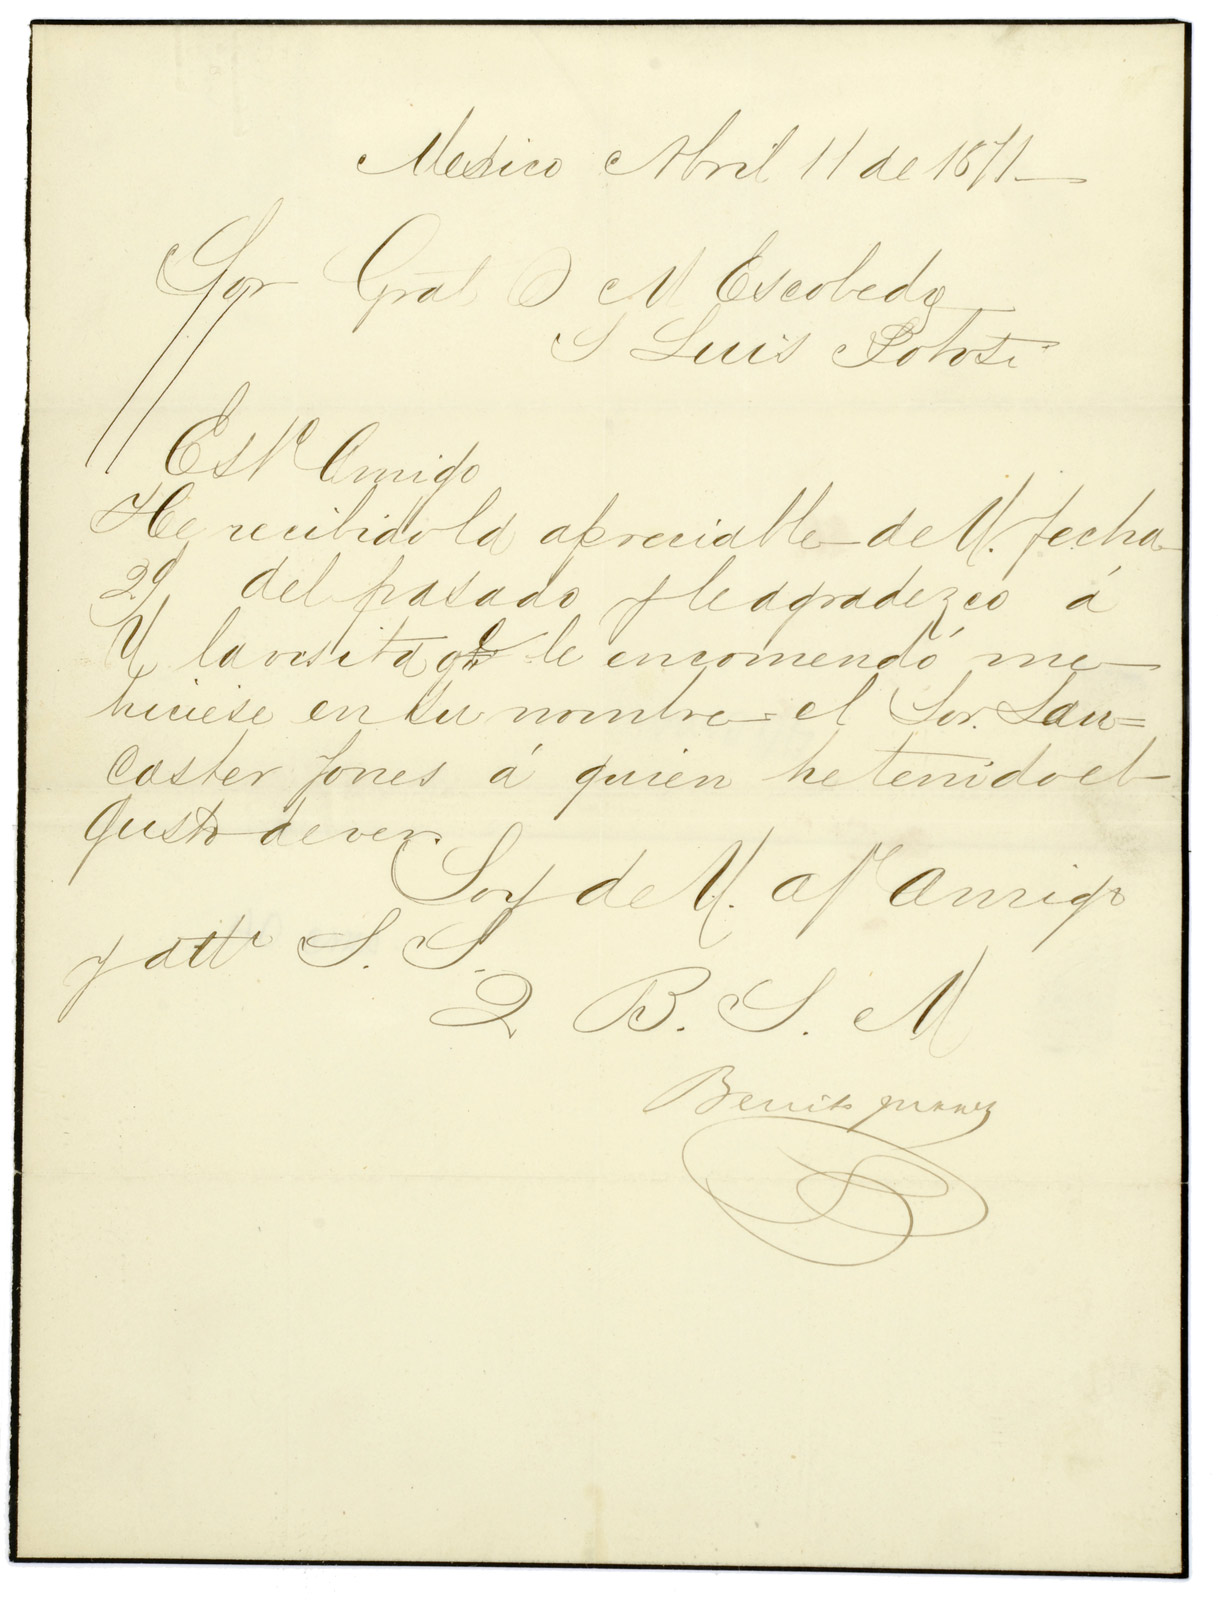 Mexico Abril 11 de 1871
Sor Gral D M Escobedo
S Luis Potosi
Estº Amigo
He recibido la apreciable de U. fecha
29 del pasado y le agradezco á
U la visita qe le encomendó me
hiciese en su nombre el Sor. Lan=
caster Jones á quien he tenido el
gusto de ver.
Soy de U. afº amigo
y attº S. S.
Q B. S. M
Benito Juarez